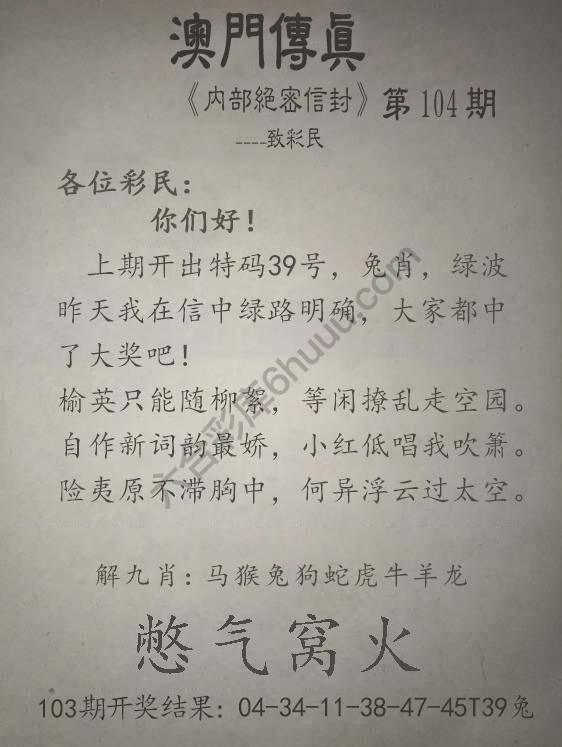 澳門傳眞
《内部絕密信封》第104期
----致彩民
各位彩民：
你们好！
上期开出特码39号，兔肖，绿波
昨天我在信中绿路明确，大家都中
了大奖吧！
榆英只能随柳絮，等闲撩乱走空园。
自作新词韵最娇，小红低唱我吹箫。
险夷原不滞胸中，何异浮云过太空。
六合彩库6huuu.com
解九肖：马猴兔狗蛇虎牛羊龙
憋气窝火
103期开奖结果：04-34-11-38-47-45T39兔